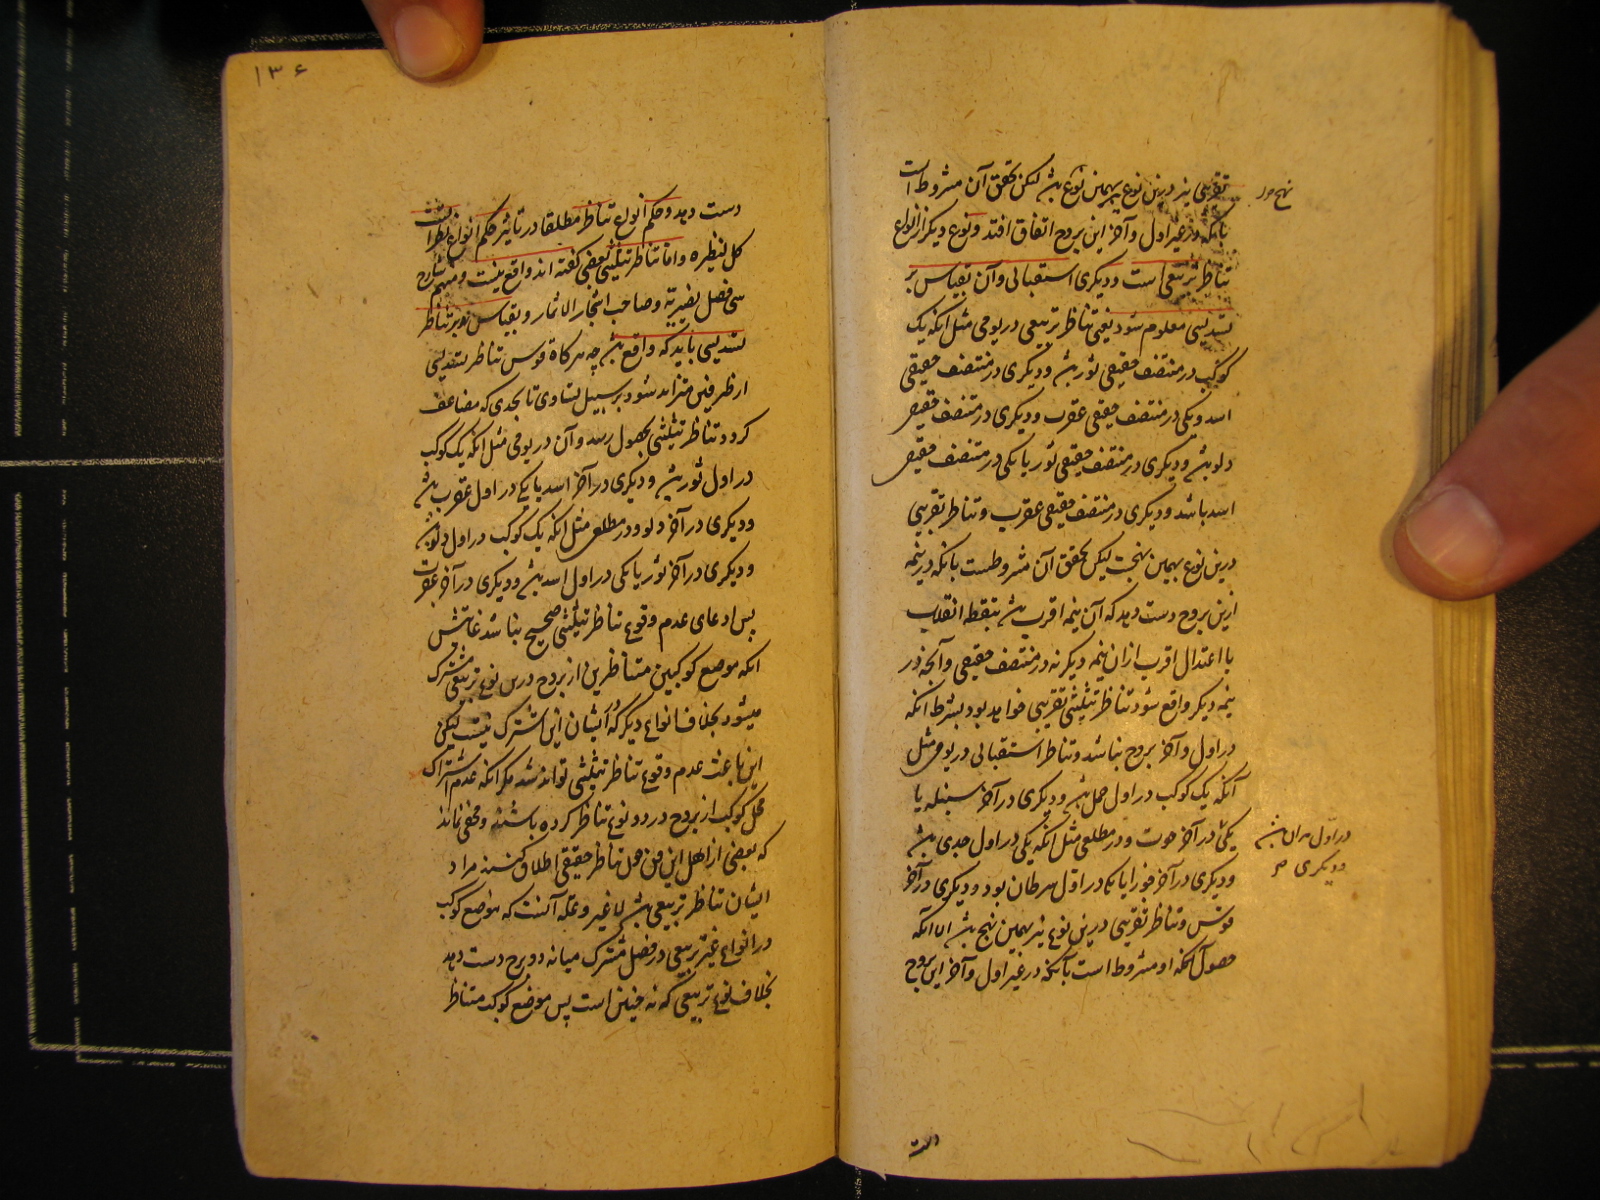 تقریبی نیز درین نوع بهمین نوع بش لیکن تحقق آن مشروط است
بانکه در غیر اول و آخر این بروج اتفاق افتد و نوع دیگر از انواع
تناظر تربیعی است و دیگری استقبالی و آن بقیاس بر
تسدیسی معلوم شود یعنی تناظر تربیعی در یومی مثل انکه یک
کوکب در منتصف حقیقی ثور بش و دیگری در منتصف حقیقی
اسد و یکی در منتصف حقیقی عقرب و دیگری در منتصف حقیقی
دلو بش و دیگری در منتصف حقیقی ثور یا یکی در منتصف حقیقی
اسد باشد و دیگری در منتصف حقیقی عقرب و تناظر تقریبی
درین نوع بهمین نهجت لیکن تحقق آن مشروطست بانکه در نیمه
ازین بروج دست دهد که آن نیمه اقرب بش بنقطه انقلاب
یا اعتدال اقرب ازان نیمه دیگر نه در منتصف حقیقی و آنچه در
نیمه دیگر واقع شود تناظر تثلیثی تقریبی خواهد بود بشرط انکه
در اول و آخر بروج نباشد و تناظر استقبالی در یومی مثل
آنکه یک کوکب در اول حمل بش و دیگری در آخر سنبله یا
یکی در آخر حوت و در مطلعی مثل انکه یکی در اول جدی بش
و دیگری در آخر جوزا یا یکی در اول سرطان بود و دیگری در آخر
قوس و تناظر تقریبی درین نوع نیز بهمین نهج بش الا انکه
حصول او مشروط است بآنکه در غیر اول و آخر این بروج
در اول میزان بش
و دیگری
دست
۱۳۶
دست دهد و حکم انواع تناظر مطلقا در تاثیر حکم انواع نظرات
کل لنظیره و اما تناظر تثلیثی بعضی گفته اند واقع نیست و منهم شارح
سی فصل نصیریة و صاحب اشجار الاثمار و بقیاس بر تناظر
تسدیسی باید که واقع بش چه هر کاه قوس تناظر تسدیسی
از طرفین متزاید شود بر سبیل تساوی تا بحدی که مضاعف
کردد تناظر تثلیثی بحصول رسد و آن در یومی مثل انکه یک کوکب
در اول ثور بش و دیگری در آخر اسد یا یکی در اول عقرب بش
و دیگری در آخر دلو و در مطلعی مثل انکه یک کوکب در اول دلو بش
و دیگری در آخر ثور یا یکی در اول اسد بش و دیگری در آخر عقرب
پس ادعای عدم وقوع تناظر تثلیثی صحیح نباشد غایتش
انکه موضع کوکبین متناظرین از بروج درین نوع و تربیعی مشترک
میشود بخلاف انواع دیگر که ایشان این اشتراک نیست لیکن
این باعث عدم وقوع تناظر تثلیثی تواند شد مکر انکه عدم اشتراک
محل کوکب از بروج در دو نوع تناظر کرده باشند و مخفی نماند
که بعضی از اهل این فن چون تناظر حقیقی اطلاق کنند مراد
ایشان تناظر تربیعی بش لا غیر و علة آنست که موضع کوکب
در انواع غیر تربیعی در فصل مشترک میانه دو برج دست دهد
بخلاف نوع تربیعی که نه چنین است پس موضع کوکب متناظر